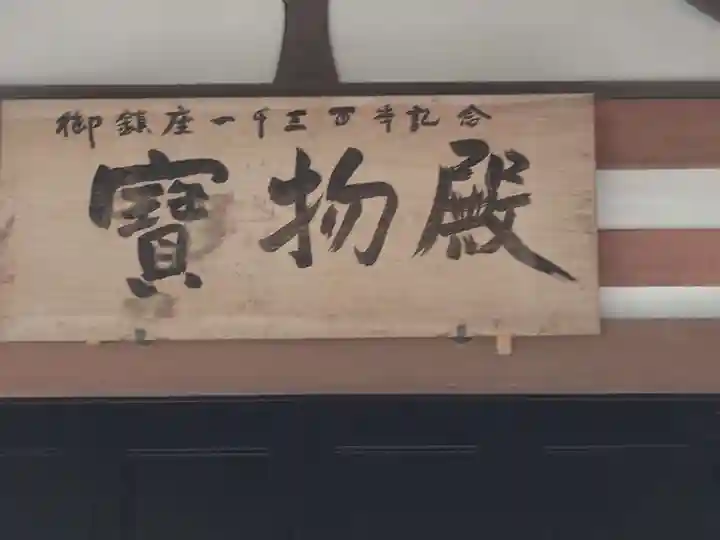 御鎮座一千三百年記念
寳物殿